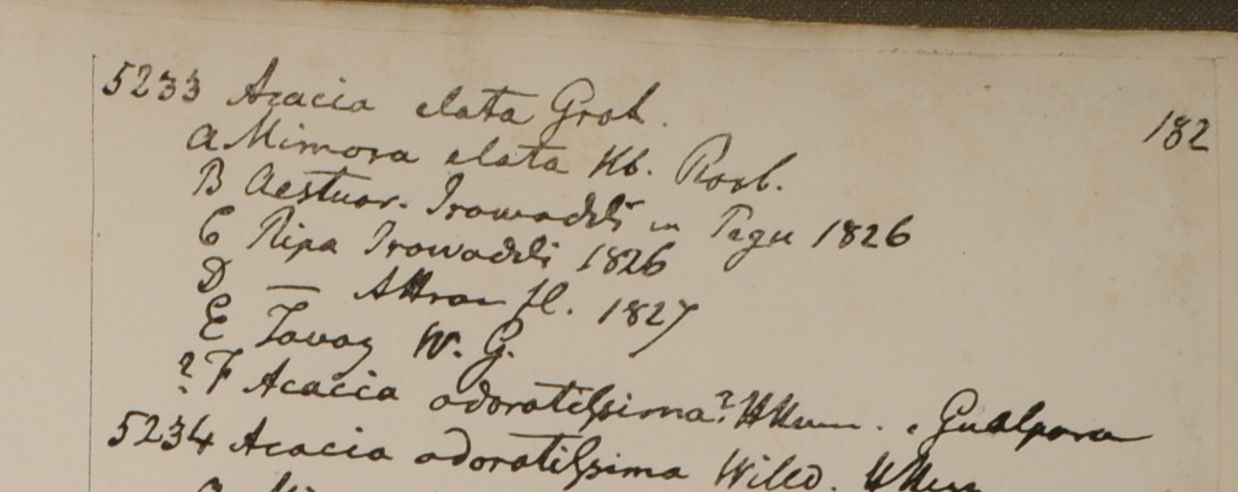 5233 Acacia elata Grah.
182
a Mimosa elata Hb. Roxb.
B Aestuar. Irawaddi in Pegu 1826
C Ripa Irowaddi 1826
D — Attran fl. 1827
E Tavoy W. G.
? F Acacia odoratissima? HHam. Gualpara
5234 Acacia odoratissima Willd. HHam